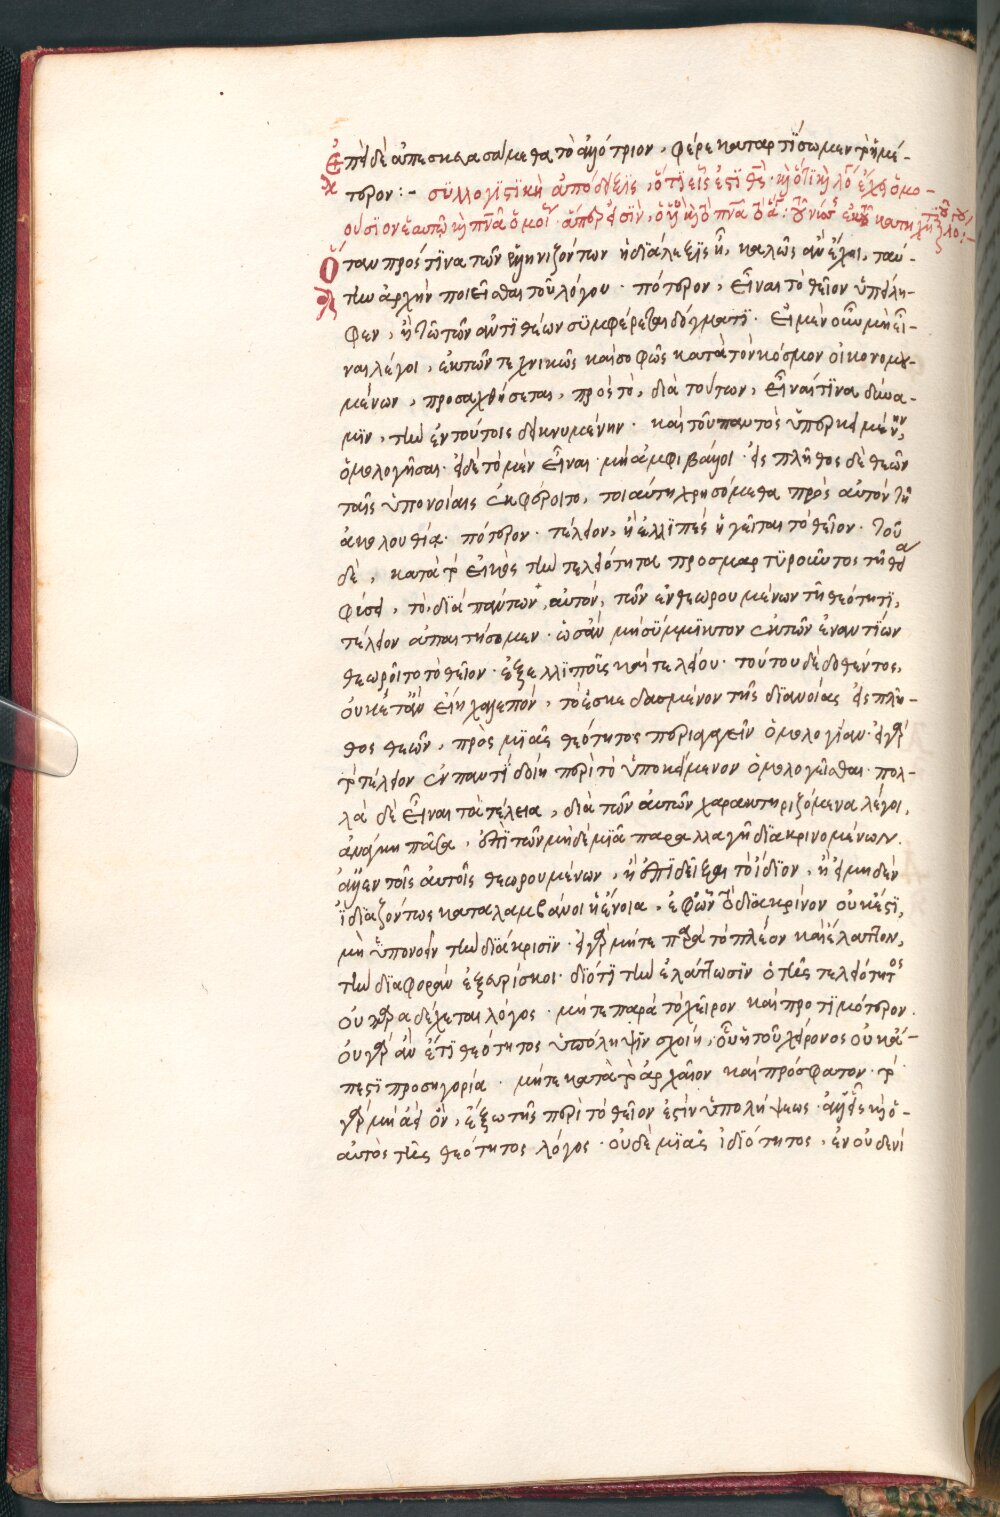 Ἐπεὶ δὲ ἀπεσκευασάμεθα τὸ ἀλλότριον, φέρε καταρτίσωμεν τὸ ἡμέ-
τερον :- συλλογιστικὴ ἀπόδειξις, ὅτι εἷς ἐστὶ θς· καὶ ὅτι καὶ λόγον ἔχει ὁμο-
ούσιον ἑαυτῷ καὶ πνα ὁμοί
Ὅταν πρός τινα τῶν ἑλληνιζόντων ἡ διάλεξις ᾖ, καλῶς ἂν ἔχοι, ταύ-
την ἀρχὴν ποιεῖσθαι τοῦ λόγου· πότερον, εἶναι τὸ θεῖον ὑπείλη-
φεν, ἢ τῷ τῶν ἀντιθέων συμφέρεται δόγματι· εἰ μὲν οὖν μὴ εἶ-
ναι λέγοι, ἐκ τῶν τεχνικῶς καὶ σοφῶς κατὰ τὸν κόσμον οἰκονομου-
μένων, προσαχθήσεται, πρὸς τὸ, διὰ τούτων, εἶναί τινα δύνα-
μιν, τὴν ἐν τούτοις δεικνυμένην· καὶ τοῦ παντὸς ὑπερκειμένην,
ὁμολογῆσαι· εἰ δὲ τὸ μὲν εἶναι μὴ ἀμφιβάλλοι· εἰς πλῆθος δὲ θεῶν
ταῖς ὑπονοίαις ἐκφέροιτο, τοιαύτῃ χρησόμεθα πρὸς αὐτὸν τῇ
ἀκολουθίᾳ· πότερον· τέλειον, ἢ ἐλλιπές ἡγεῖται τὸ θεῖον· τοῦ
δὲ, κατὰ τὸ εἰκὸς τὴν τελειότητα προσμαρτυροῦντος τῇ θείᾳ
φύσει, τὸ, διὰ πάντων, αὐτὸν, τῶν ἐνθεωρουμένων τῇ θεότητι,
τέλειον ἀπαιτήσομεν· ὡς ἂν μὴ σύμμικτον ἐκ τῶν ἐναντίων
θεωροῖτο τὸ θεῖον· ἐξ ἐλλιποῦς καὶ τελείου· τούτου δὲ δοθέντος,
οὐκέτ' ἂν εἴη χαλεπόν, τὸ ἐσκεδασμένον τῆς διανοίας εἰς πλῆ-
θος θεῶν, πρὸς μιᾶς θεότητος περιαγαγεῖν ὁμολογίαν· εἰ γὰρ
τὸ τέλειον ἐν παντὶ δοίη περὶ τὸ ὑποκείμενον ὁμολογεῖσθαι· πολ-
λὰ δὲ εἶναι τὰ τέλεια, διὰ τῶν αὐτῶν χαρακτηριζόμενα λέγοι,
ἀνάγκη πᾶσα, ἐπὶ τῶν μηδεμιᾷ παραλλαγῇ διακρινομένων.
ἀλλ' ἐν τοῖς αὐτοῖς θεωρουμένων, ἢ ἐπιδεῖξαι τὸ ἴδιον, ἢ εἰ μηδὲν
ἰδιαζόντως καταλαμβάνοι ἡ ἔννοια, ἐφ' ὧν τὸ διακρίνον οὐκ ἔστι,
μὴ ὑπονοεῖν τὴν διάκρισιν· εἰ γὰρ μήτε παρὰ τὸ πλέον καὶ ἔλαττον,
τὴν διαφορὰν ἐξευρίσκοι· διότι τὴν ἐλάττωσιν ὁ τῆς τελειότητος
οὐ παραδέχεται λόγος· μήτε παρὰ τὸ χεῖρον καὶ προτιμότερον.
οὐ γὰρ ἂν ἔτι θεότητος ὑπόληψιν σχοίη, οὗ ἡ τοῦ χείρονος οὐκ ἄ-
πεστι προσηγορία· μήτε κατὰ τὸ ἀρχαῖον καὶ πρόσφατον· τὸ
γὰρ μὴ ἀεὶ ὂν, ἔξω τῆς περὶ τὸ θεῖον ἐστὶν ὑπολήψεως· ἀλλ' εἷς καὶ ὁ
αὐτὸς τῆς θεότητος λόγος· οὐδεμιᾶς ἰδιότητος, ἐν οὐδενὶ